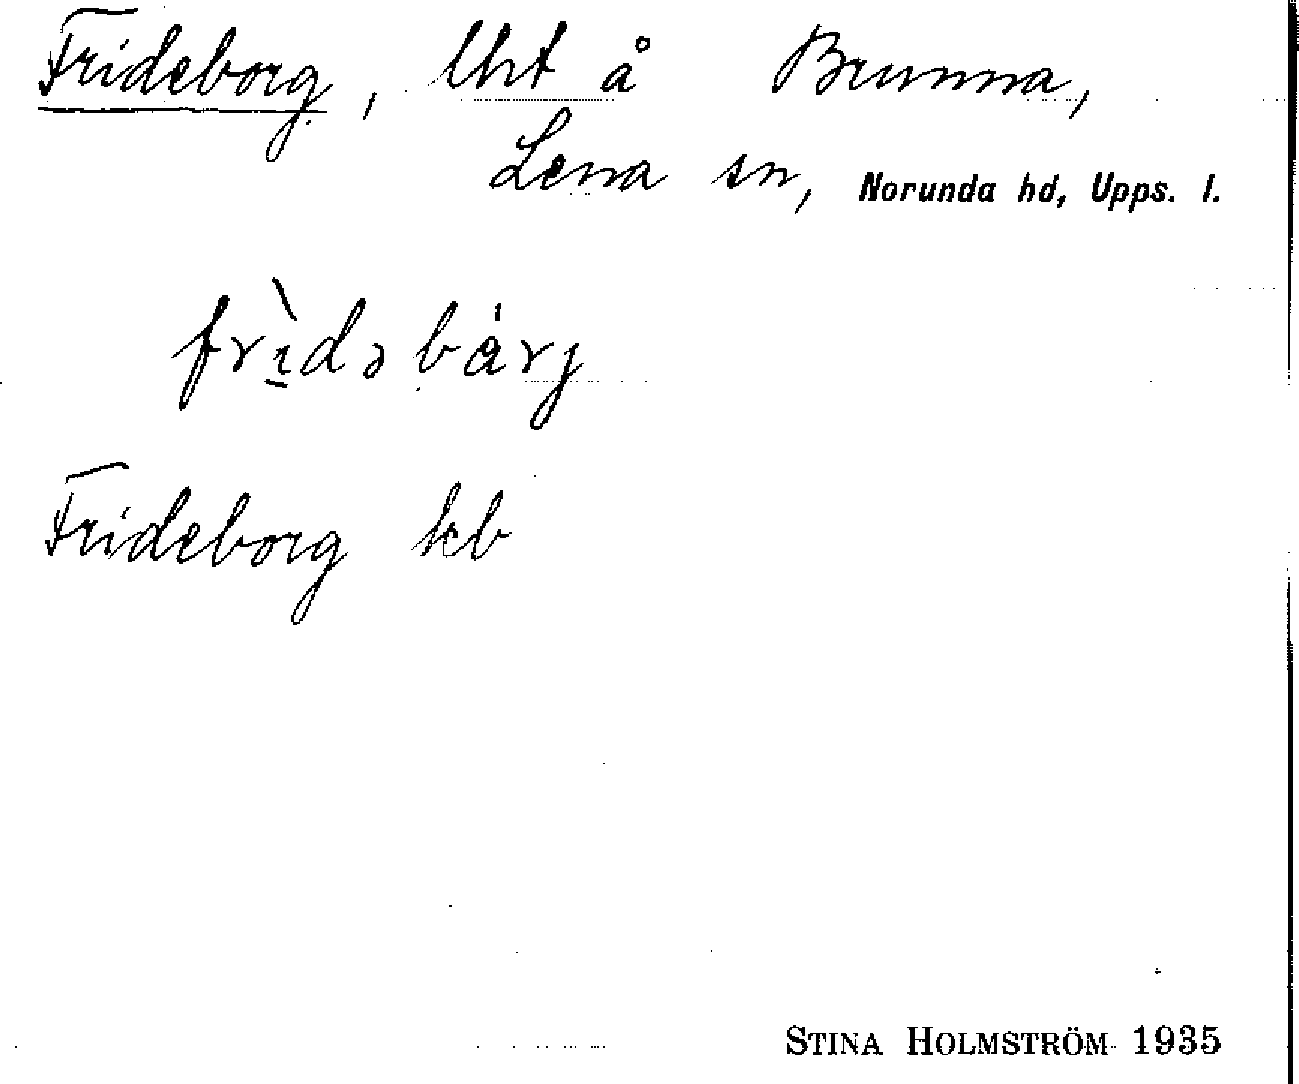 Frideborg, lht å Brunna,
Lena sn, Norunda hd, Upps. l.
frìdəbàrj
Frideborg kb
STINA HOLMSTRÖM 1935